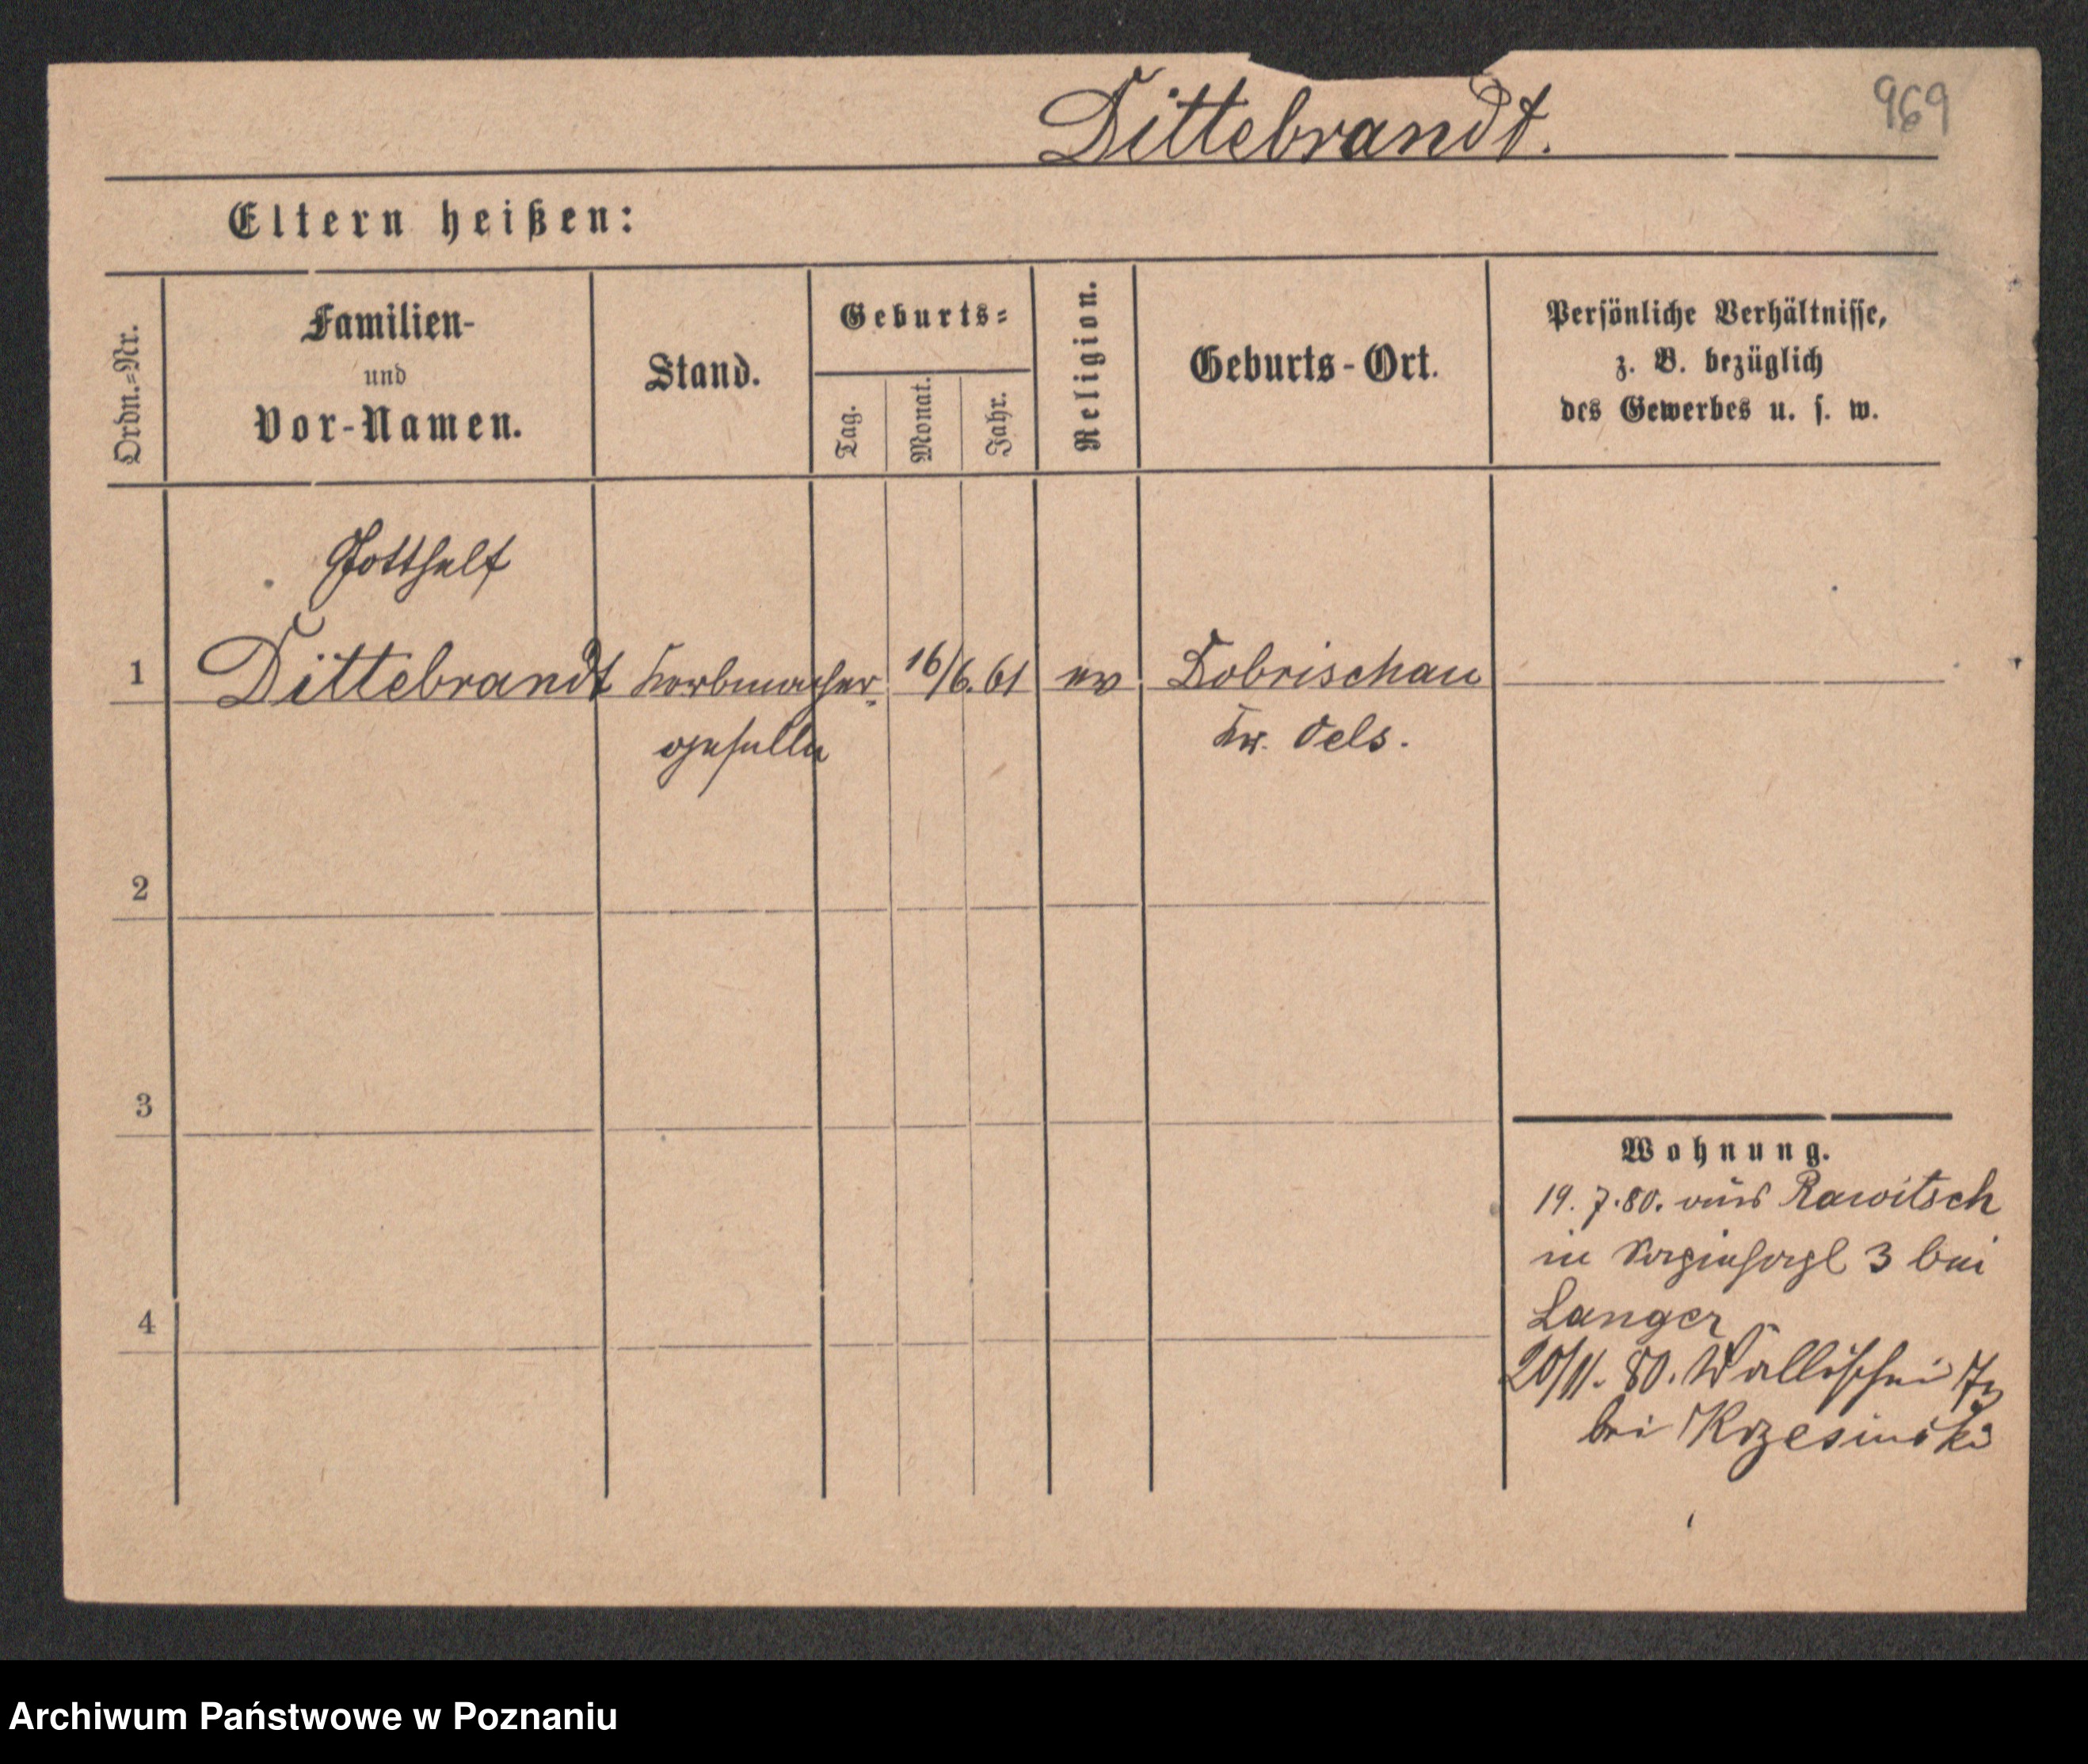 969
Dittebrandt.
Eltern heißen:
Ordn.=Nr.
Familien-
und
Vor-Namen.
Stand.
Geburts=
Tag.
Monat.
Jahr.
Religion.
Geburts-Ort.
Persönliche Verhältnisse,
z. B. bezüglich
des Gewerbes u. s. w.
Gotthelf
1 Dittebrandt Korbmacher= 16/6. 61 ev Dobrischau
geselle Kr. Oels.
2
3
4
Wohnung.
19. 7. 80. aus Rawitsch
in 3 bei
Langer
20/11. 80. Wallischei
bei Krzesinski
Archiwum Państwowe w Poznaniu